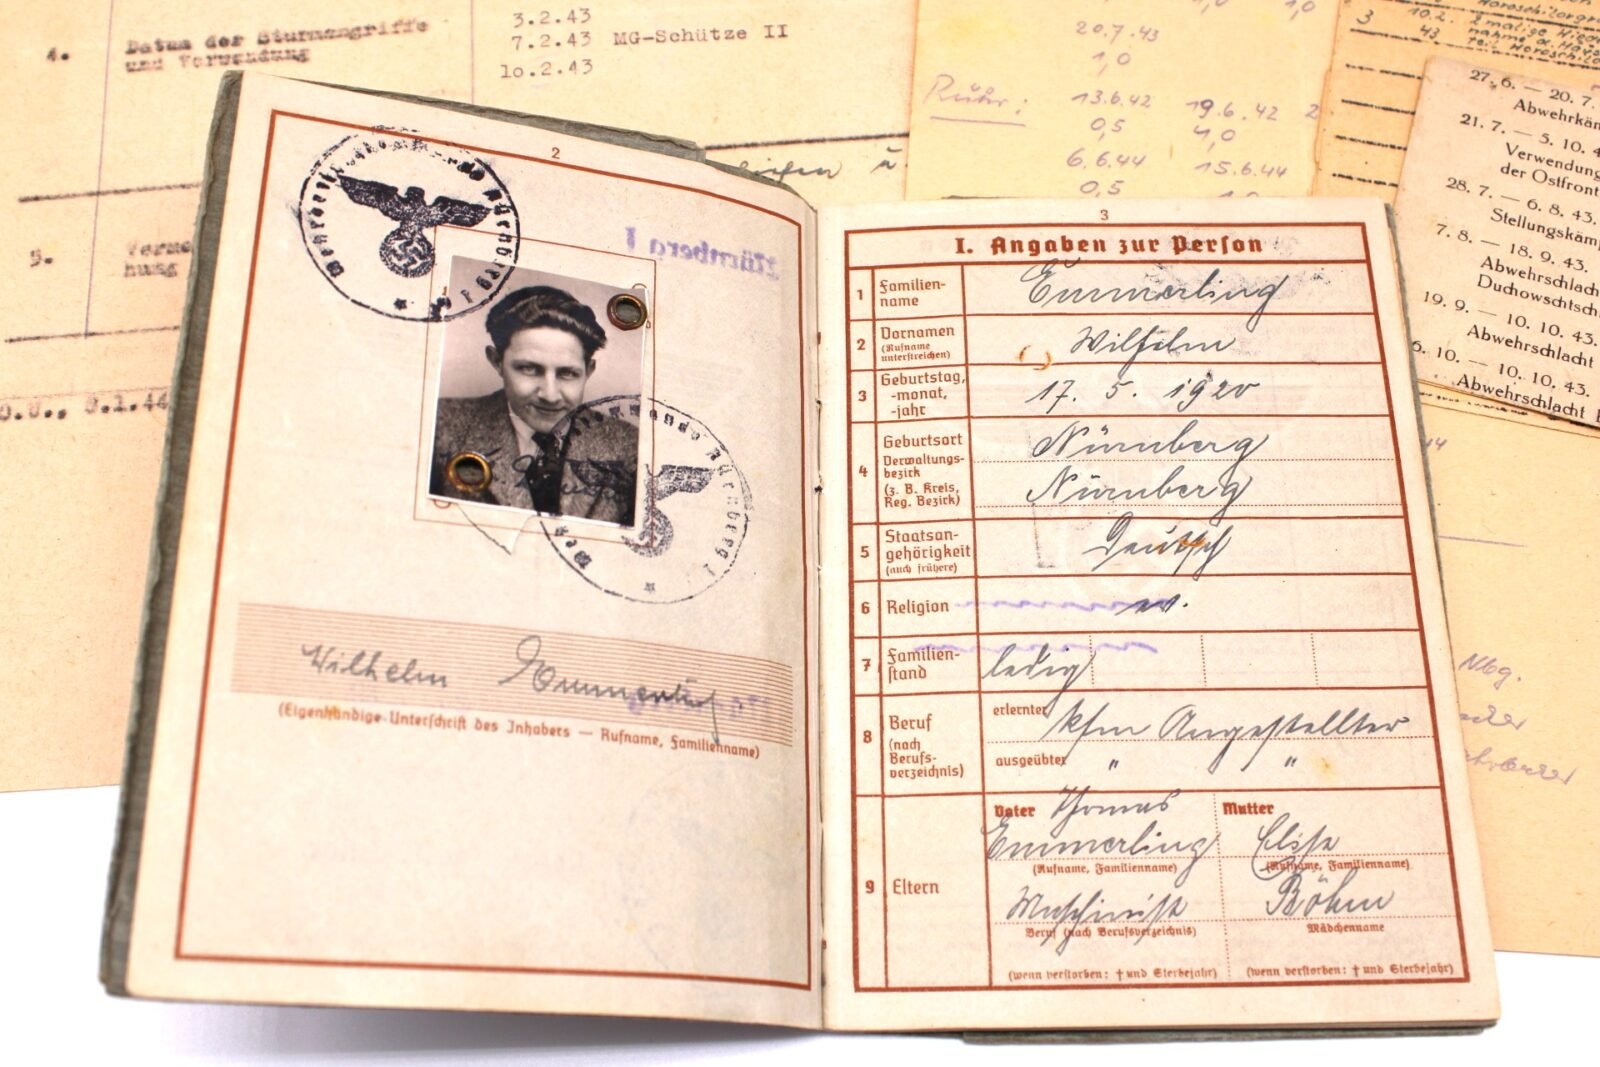 4. Datum der Sturmangriffe
und Verwendung
3.2.43
7.2.43 MG-Schütze II
10.2.43
5.
20.7.43
1,0
Ruhr: 13.6.42 19.6.42 2
0,5 1,0
6.6.44 15.6.44
0,5
3 10.2. 2malige
43
27. 6. — 20. 7.
Abwehrkäm
21. 7. — 5. 10. 4
Verwendung
der Ostfront
28. 7. — 6. 8. 43.
Stellungskämp
7. 8. — 18. 9. 43.
Abwehrschlach
Duchowschtsch
19. 9. — 10. 10. 43.
Abwehrschlacht
6. 10. — 10. 10. 43.
Abwehrschlacht
2
Nürnberg I
Wilhelm Emmerling
(Eigenhändige Unterschrift des Inhabers — Rufname, Familienname)
3
I. Angaben zur Person
1 Familien-
name
Emmerling
2 Vornamen
(Rufname
unterstreichen)
Wilhelm
3 Geburtstag,
-monat,
-jahr
17. 5. 1920
4 Geburtsort
Verwaltungs-
bezirk
(z. B. Kreis,
Reg. Bezirk)
Nürnberg
Nürnberg
5 Staatsan-
gehörigkeit
(auch frühere)
Deutsch
6 Religion
7 Familien-
stand
ledig
8 Beruf
(nach
Berufs-
verzeichnis)
erlernter kfm Angestellter
ausgeübter " "
9 Eltern
Vater Thomas
Emmerling
(Rufname, Familienname)
Maschinist
Beruf (nach Berufsverzeichnis)
(wenn verstorben: † und Sterbejahr)
Mutter
Elise
(Rufname, Familienname)
Böhm
Mädchenname
(wenn verstorben: † und Sterbejahr)
Nbg.